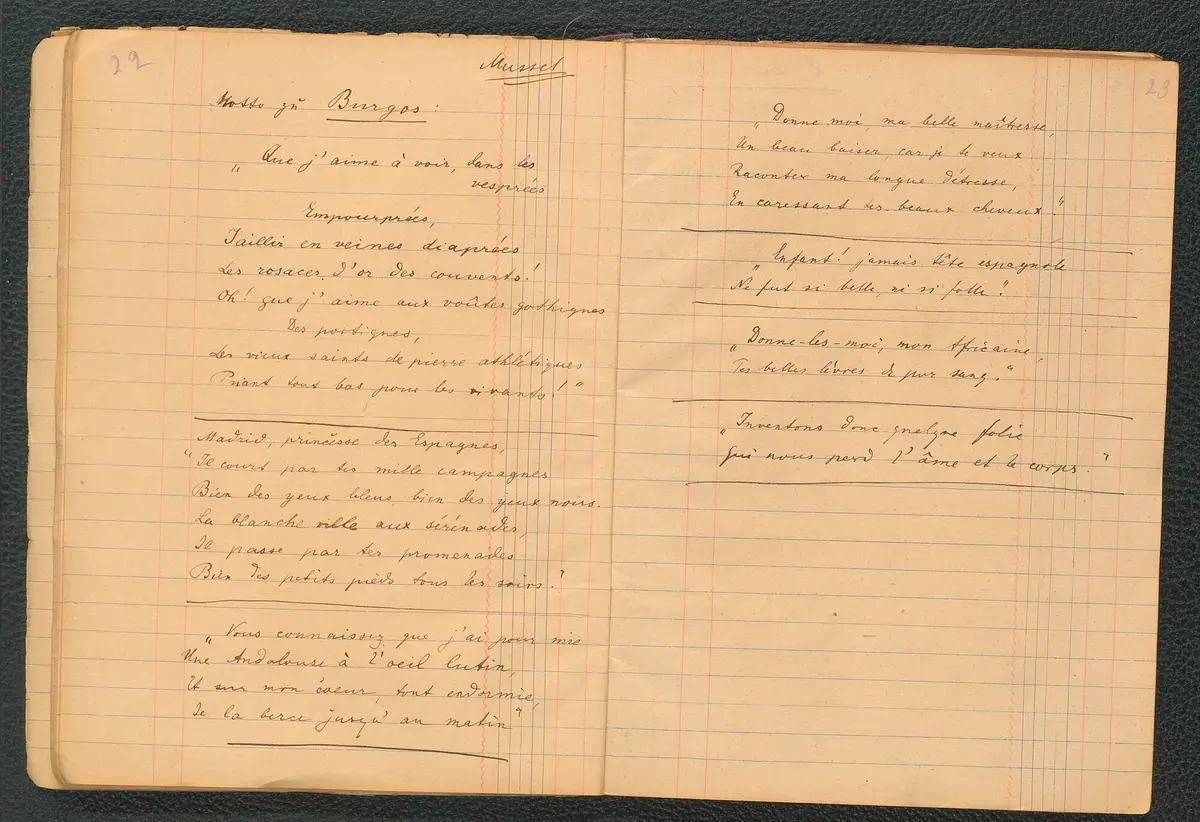 22
Musset
Motto zu Burgos:
„Que j'aime à voir, dans les
vesprées
Empourprées,
Jaillir en veines diaprées
Les rosaces d'or des couvents!
Oh! que j'aime aux voûtes gothiques
Des portiques,
Les vieux saints de pierre athlétiques
Priant tout bas pour les vivants!"
Madrid, princesse des Espagnes,
"Il court par tes mille campagnes
Bien des yeux bleus, bien des yeux noirs.
La blanche ville aux sérénades,
Il passe par tes promenades
Bien des petits pieds tous les soirs."
„Vous connaissez que j'ai pour mie
Une Andalouse à l'oeil lutin,
Et sur mon coeur, tout endormie,
Je la berce jusqu'au matin"
23
„Donne moi, ma belle maîtresse,
Un beau baiser, car je te veux
Raconter ma longue détresse,
En caressant tes beaux cheveux."
„Enfant! jamais tête espagnole
Ne fut si belle, ni si folle."
„Donne-les-moi, mon Africaine,
Tes belles lèvres de pur sang."
„Inventons donc quelque folie
Qui nous perd l'âme et le corps."